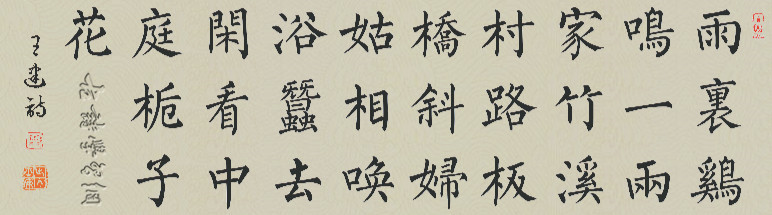 雨裏鷄
鳴一兩
家竹溪
村路板
橋斜婦
姑相喚
浴蠶去
閑看中
庭栀子
花
王建詩